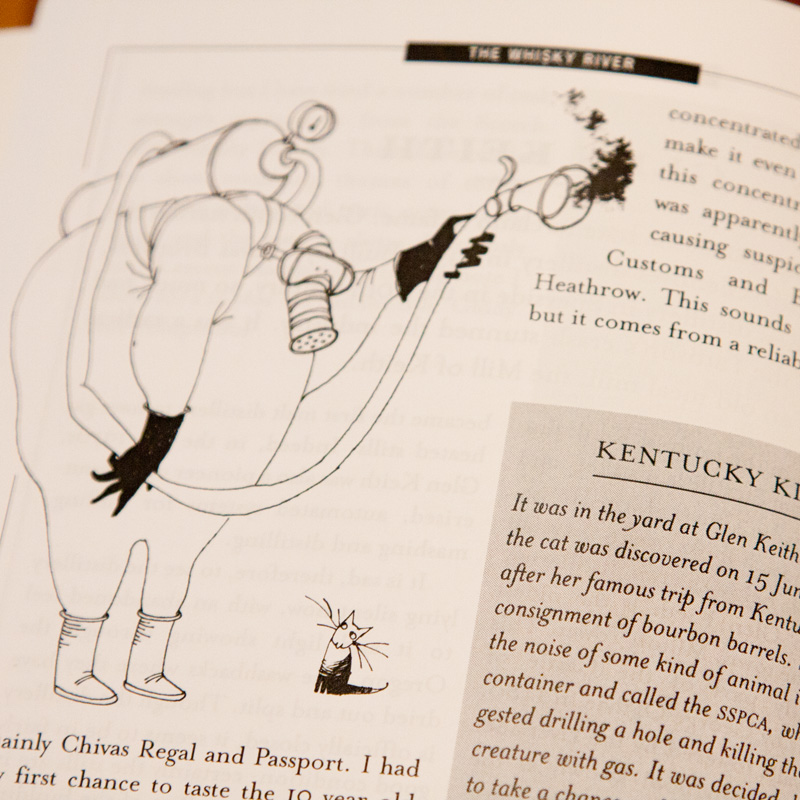 THE WHISKY RIVER
concentrated
make it even
this concentr
was apparently
causing suspic
Customs and E
Heathrow. This sounds
but it comes from a reliab
KENTUCKY KI
It was in the yard at Glen Keith
the cat was discovered on 15 Jun
after her famous trip from Kentu
consignment of bourbon barrels.
the noise of some kind of animal i
container and called the SSPCA, wh
gested drilling a hole and killing the
creature with gas. It was decided,
to take a chance
ainly Chivas Regal and Passport. I had
y first chance to taste the 10 year old